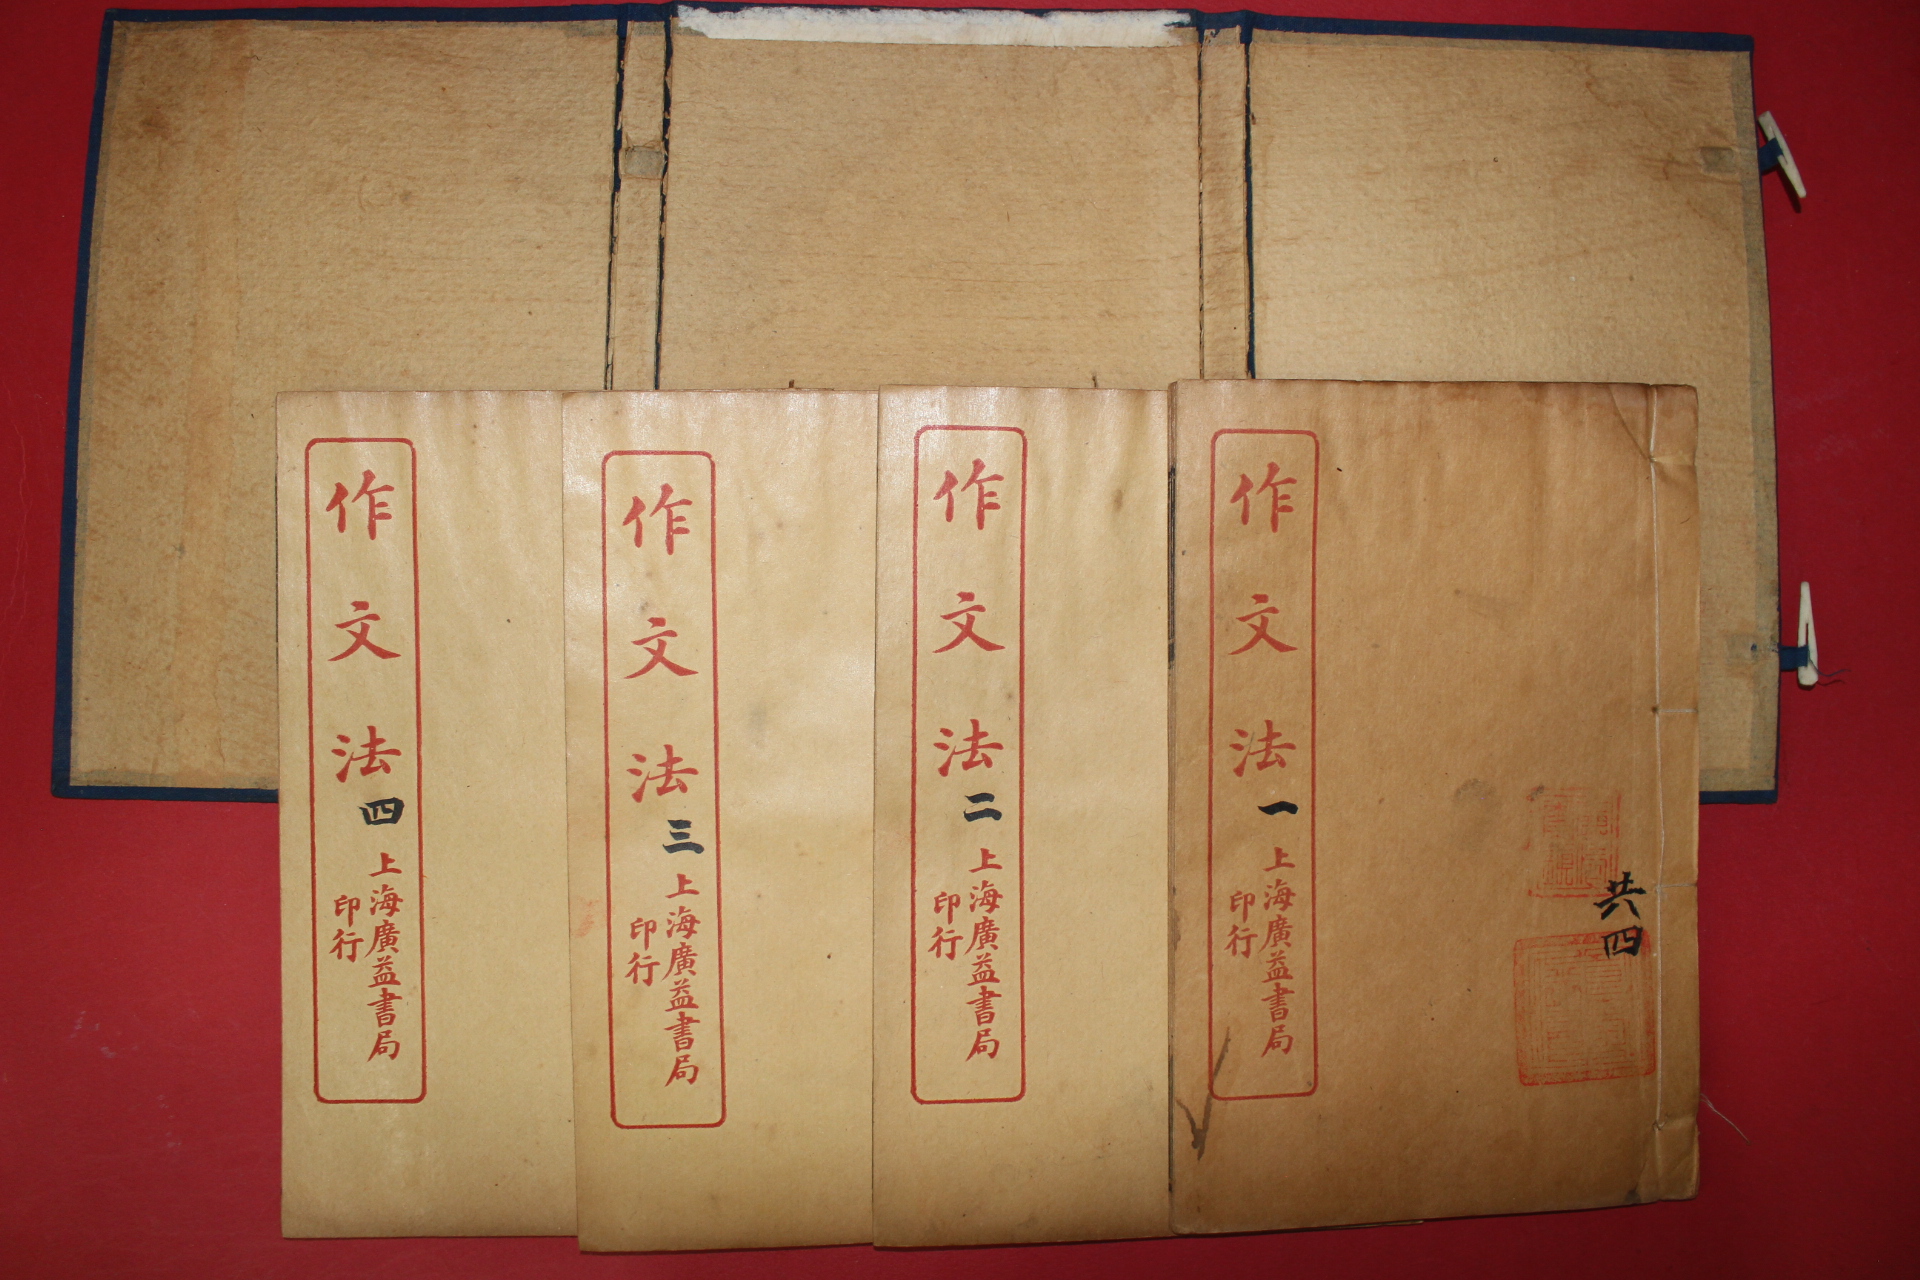 共四
作文法
一
上海廣益書局
印行
作文法
二
上海廣益書局
印行
作文法
三
上海廣益書局
印行
作文法
四
上海廣益書局
印行